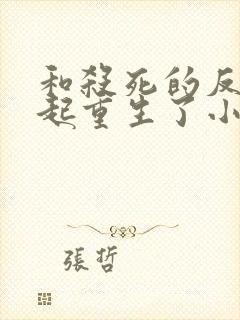 和殺死的反
起重生了小
張哲